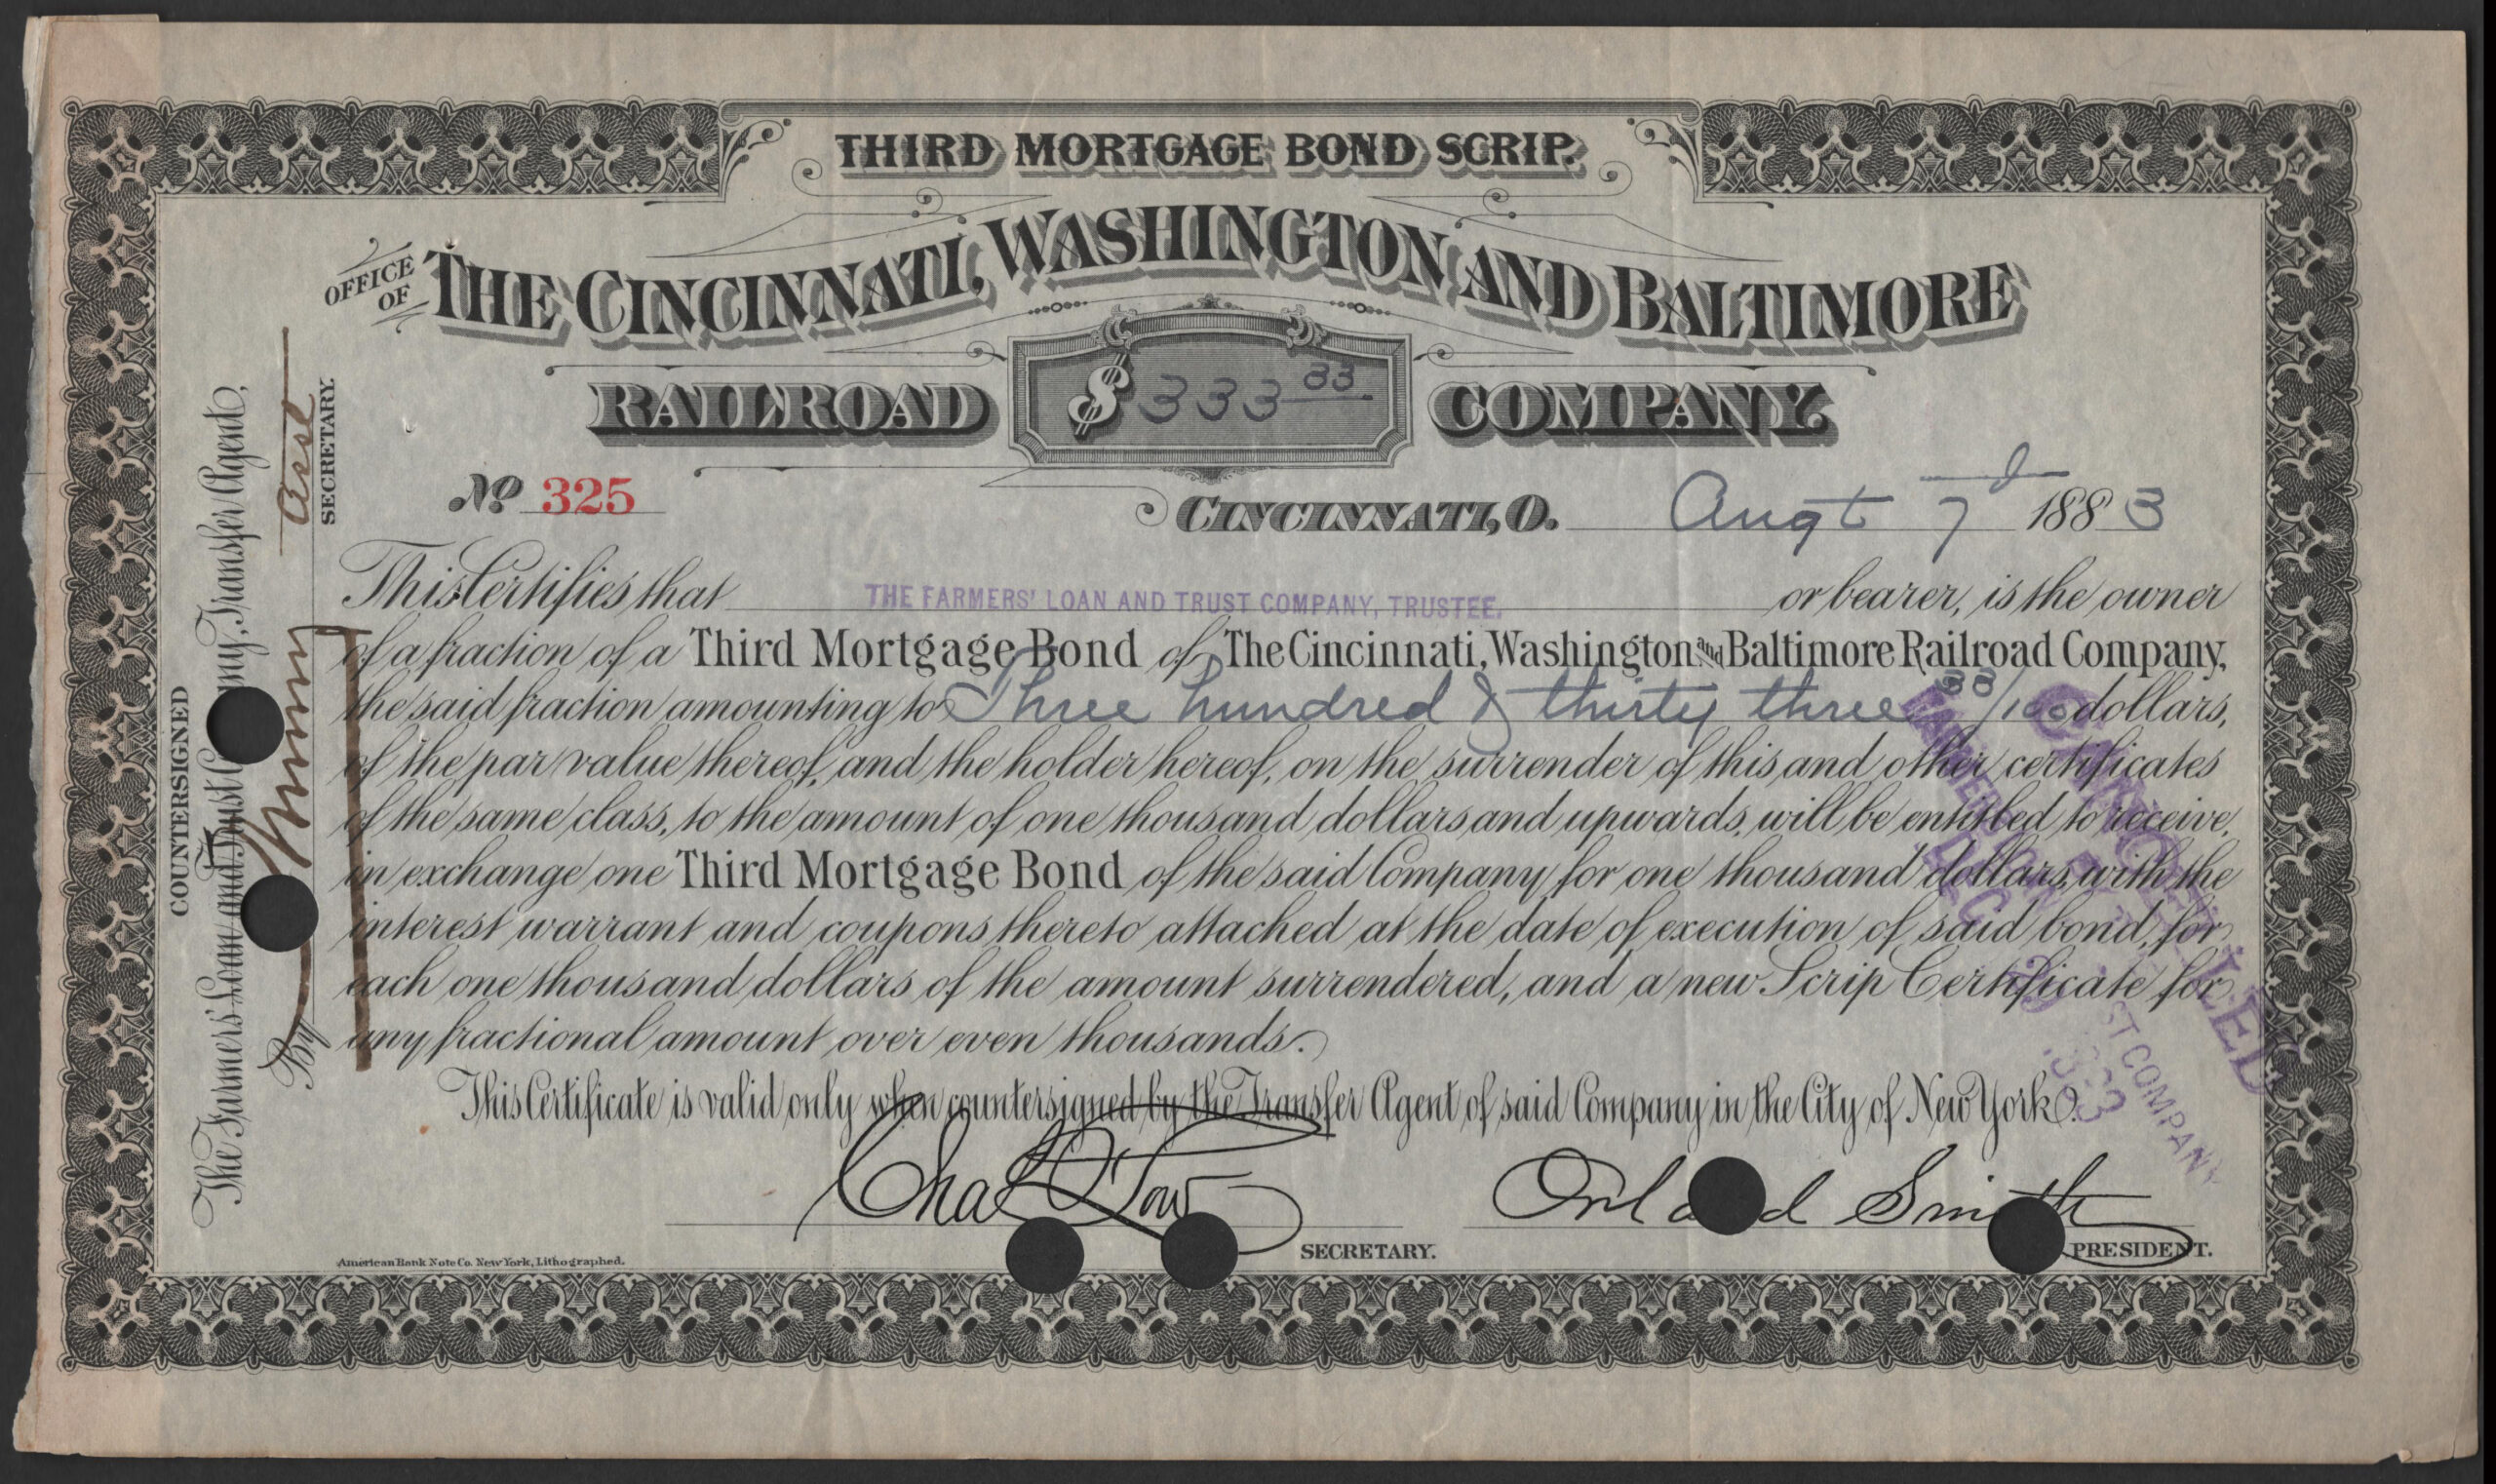 THIRD MORTGAGE BOND SCRIP.
OFFICE OF THE CINCINNATI, WASHINGTON AND BALTIMORE
RAILROAD $ 333 33 COMPANY.
No 325
CINCINNATI, O. Augt 7d 1883
This Certifies that THE FARMERS' LOAN AND TRUST COMPANY, TRUSTEE. or bearer, is the owner
of a fraction of a Third Mortgage Bond of The Cincinnati, Washington and Baltimore Railroad Company,
the said fraction amounting to Three hundred & thirty three 33/100 dollars,
of the par value thereof, and the holder hereof, on the surrender of this and other certificates
of the same class, to the amount of one thousand dollars and upwards, will be entitled to receive,
in exchange one Third Mortgage Bond of the said Company for one thousand dollars, with the
interest warrant and coupons thereto attached at the date of execution of said bond, for
each one thousand dollars of the amount surrendered, and a new Scrip Certificate for
any fractional amount over even thousands.
This Certificate is valid only when countersigned by the Transfer Agent of said Company in the City of New York.
Chas F Low
SECRETARY.
Orland Smith
PRESIDENT.
American Bank Note Co. New York, Lithographed.
COUNTERSIGNED
The Farmers' Loan and Trust Company, Transfer Agent,
By
SECRETARY.
CANCELLED
BY THE
FARMERS LOAN TRUST COMPANY
DEC 29